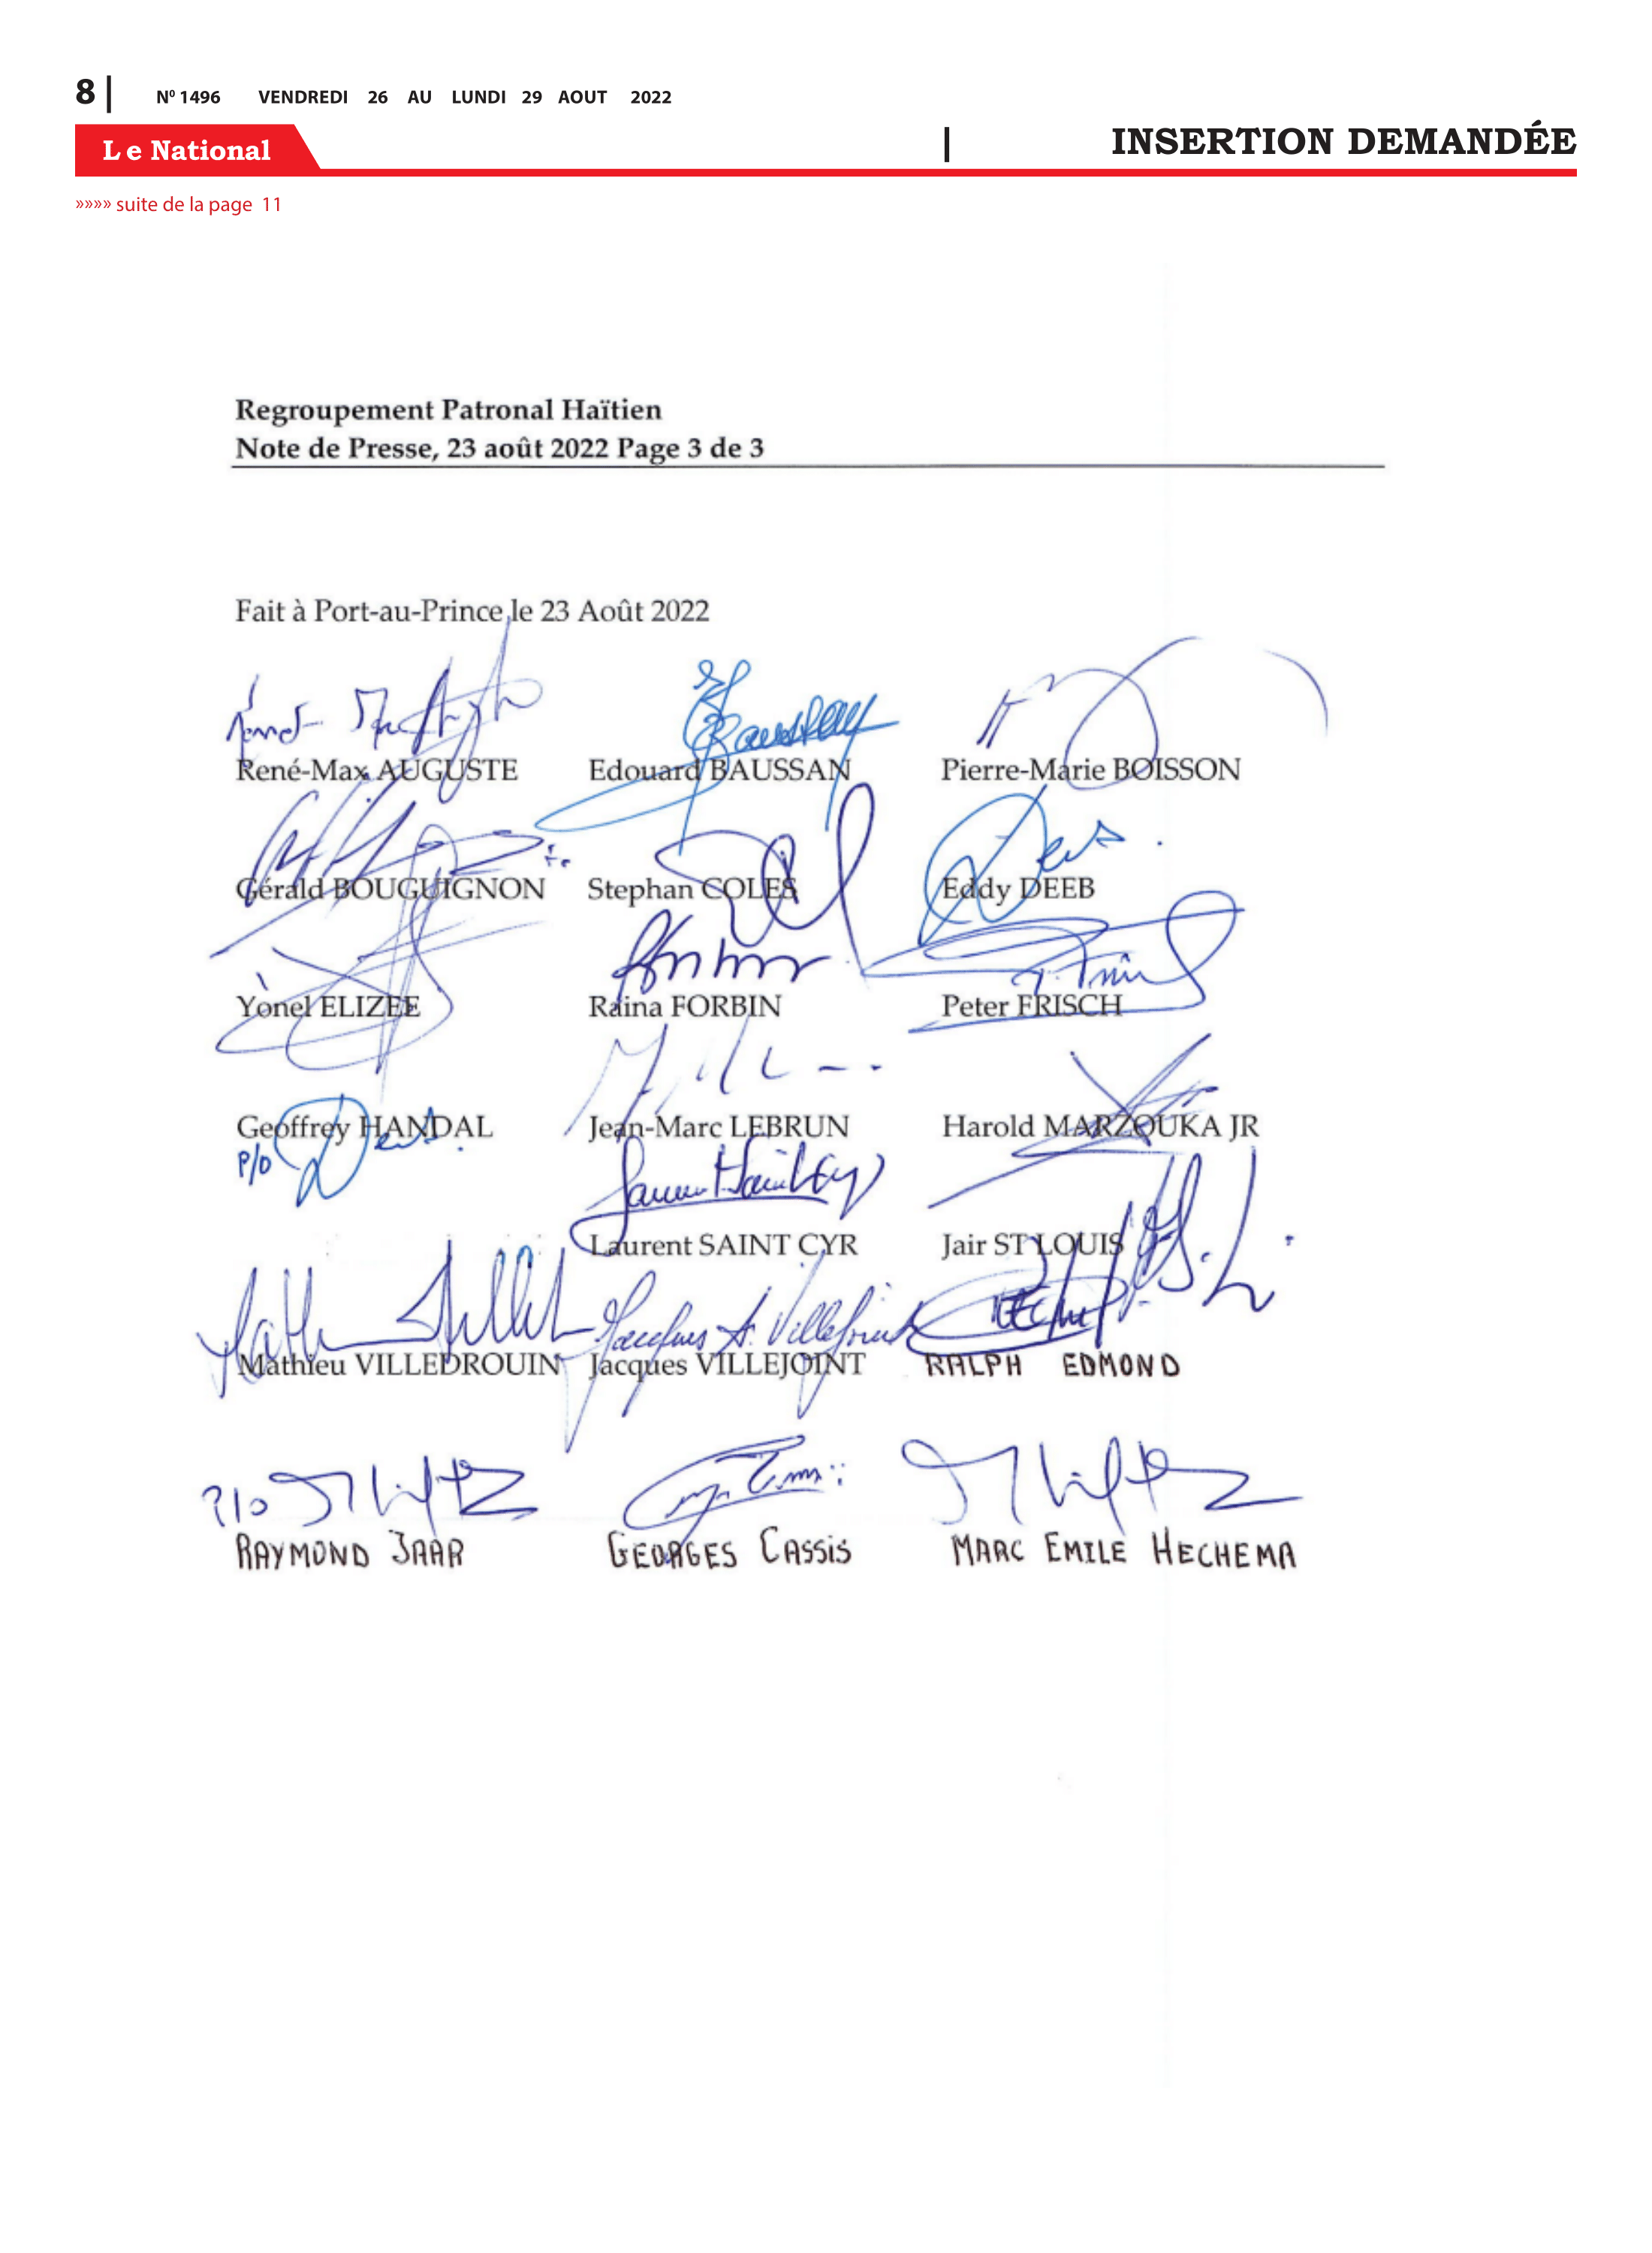 8 | N⁰ 1496 VENDREDI 26 AU LUNDI 29 AOUT 2022
Le National
| INSERTION DEMANDÉE
»»»» suite de la page 11
Regroupement Patronal Haïtien
Note de Presse, 23 août 2022 Page 3 de 3
Fait à Port-au-Prince, le 23 Août 2022
René-Max AUGUSTE Edouard BAUSSAN Pierre-Marie BOISSON
Gérald BOUGUIGNON Stephan COLES Eddy DEEB
Yonel ELIZEE Raina FORBIN Peter FRISCH
Geoffrey HANDAL Jean-Marc LEBRUN Harold MARZOUKA JR
P/O
Laurent SAINT CYR Jair ST LOUIS
Mathieu VILLEDROUIN Jacques VILLEJOINT RALPH EDMOND
P/O
RAYMOND JAAR GEORGES CASSIS MARC EMILE HECHEMA